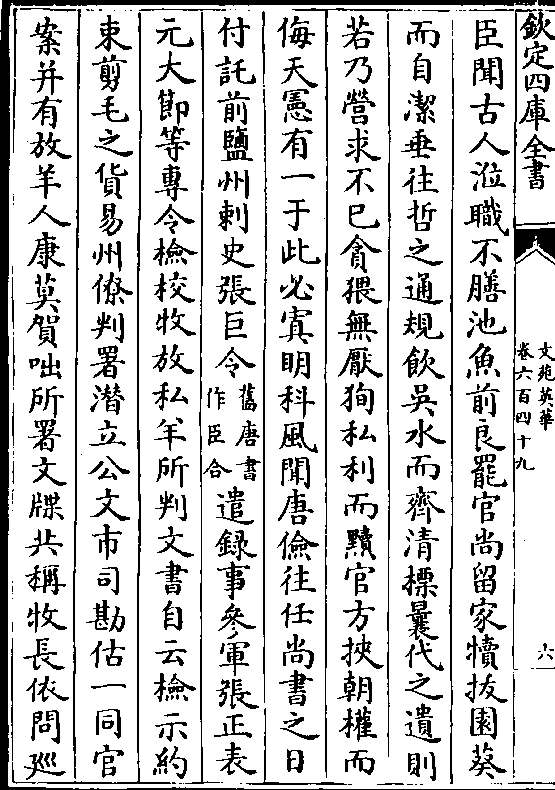 欽定四庫全書
文苑英華
卷六百四十九
六
臣聞古人涖職不膳池魚前良罷官尚留家犢拔園葵
而自潔垂往哲之通規飲吳水而齊清標曩代之遺則
若乃營求不已貪猥無厭狥私利而黷官方挾朝權而
侮天憲有一于此必寘明科風聞唐儉往任尚書之日
付託前鹽州刺史張巨令舊唐書作臣合遣録事參軍張正表
元大節等專令檢校牧放私羊所判文書自云檢示約
束剪毛之貨易州僚判署潛立公文市司勘估一同官
案并有放羊人康莫賀咄所署文牒共稱牧長依問廵